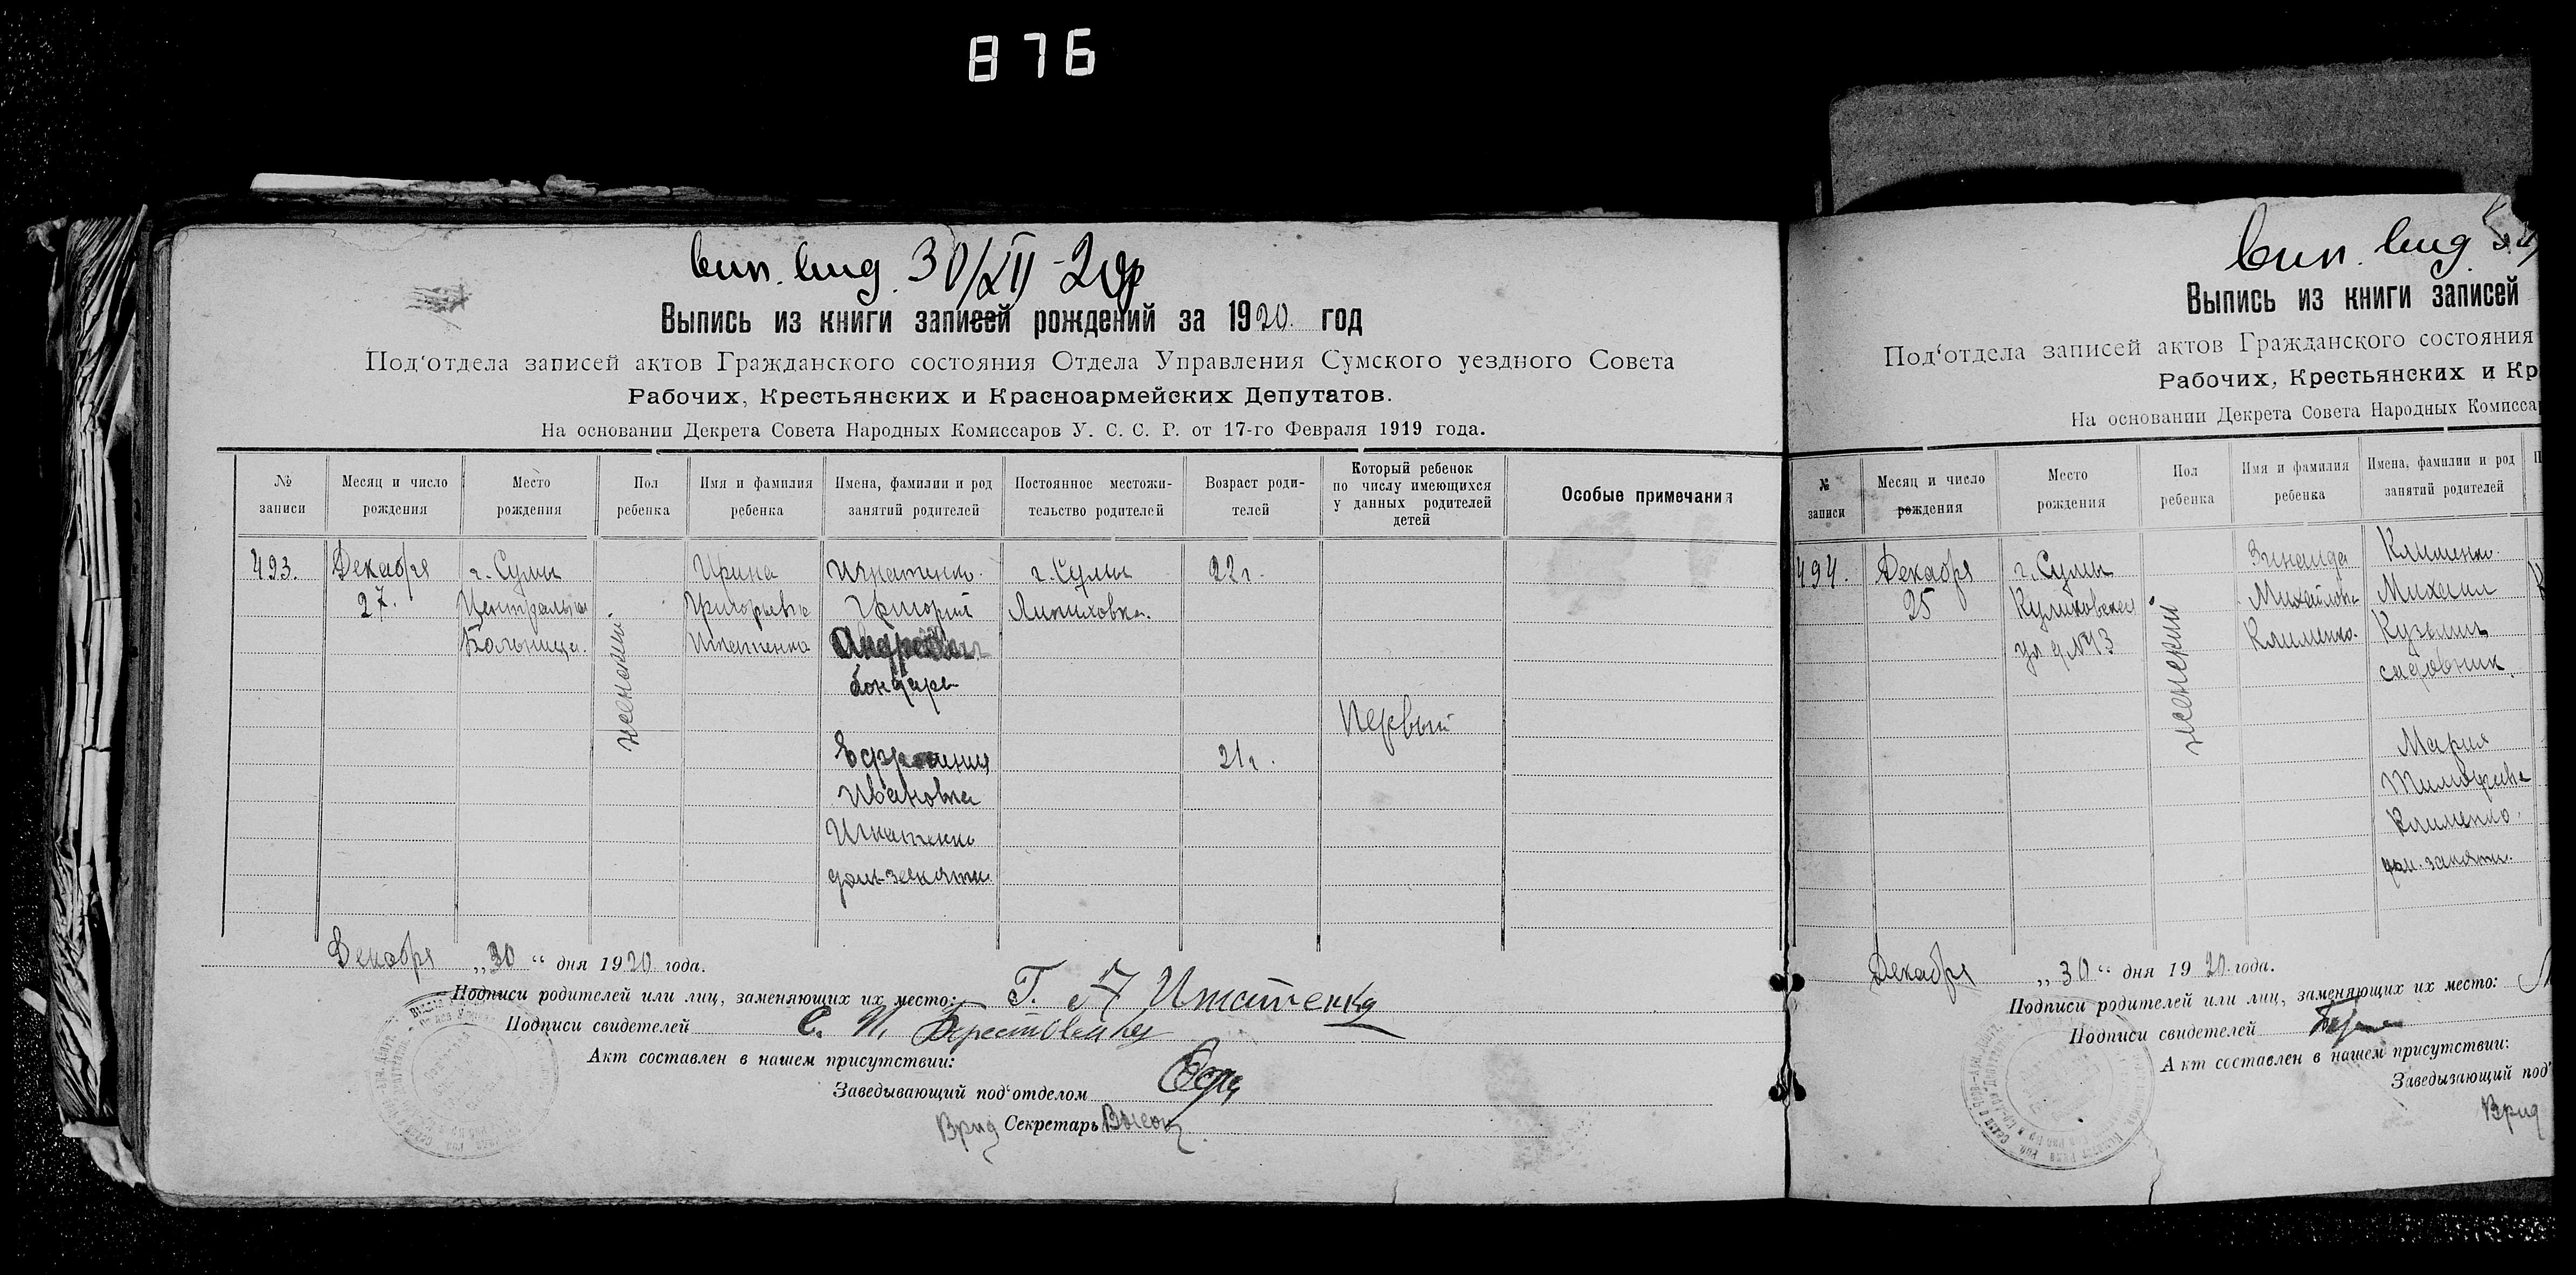 876
30/XII-20
Выпись из книги записей рождений за 1920 год
Под‘отдела записей актов Гражданского состояния Отдела Управления Сумского уездного Совета
Рабочих, Крестьянских и Красноармейских Депутатов.
На основании Декрета Совета Народных Комиссаров У. С. С. Р. от 17-го Февраля 1919 года.
№ записи
Месяц и число рождения
Место рождения
Пол ребенка
Имя и фамилия ребенка
Имена, фамилии и род занятий родителей
Постоянное местожительство родителей
Возраст родителей
Который ребенок по числу имеющихся у данных родителей детей
Особые примечания
493.
Декабря
27.
г. Сумы
Центральная
Больница.
женский
Ирина
Григорьевна
Игнатенко
Игнатенко
Григорий
бондарь
Ефросиния
Ивановна
Игнатенко
дом. занятия
г. Сумы
22 г.
21 г.
Первый
Декабря „30“ дня 1920 года.
Подписи родителей или лиц, заменяющих их место: Г. А Игнатенко
Подписи свидетелей С. И.
Акт составлен в нашем присутствии:
Заведывающий под‘отделом
Врид Секретарь
Выпись из книги записей
Под‘отдела записей актов Гражданского состояния
Рабочих, Крестьянских и Кр
На основании Декрета Совета Народных Комиссар
№ записи
Месяц и число рождения
Место рождения
Пол ребенка
Имя и фамилия ребенка
Имена, фамилии и род занятий родителей
494.
Декабря
25
г. Сумы
Куликовская
ул д. №43
женский
Зинаида
Михайловна
Клименко.
Клименко.
Михаил
Кузьмич
садовник
Мария
Тимофеевна
Клименко.
дом. занятия.
Декабря „30“ дня 1920 года.
Подписи родителей или лиц, заменяющих их место:
Подписи свидетелей
Акт составлен в нашем присутствии:
Заведывающий под‘
Врид